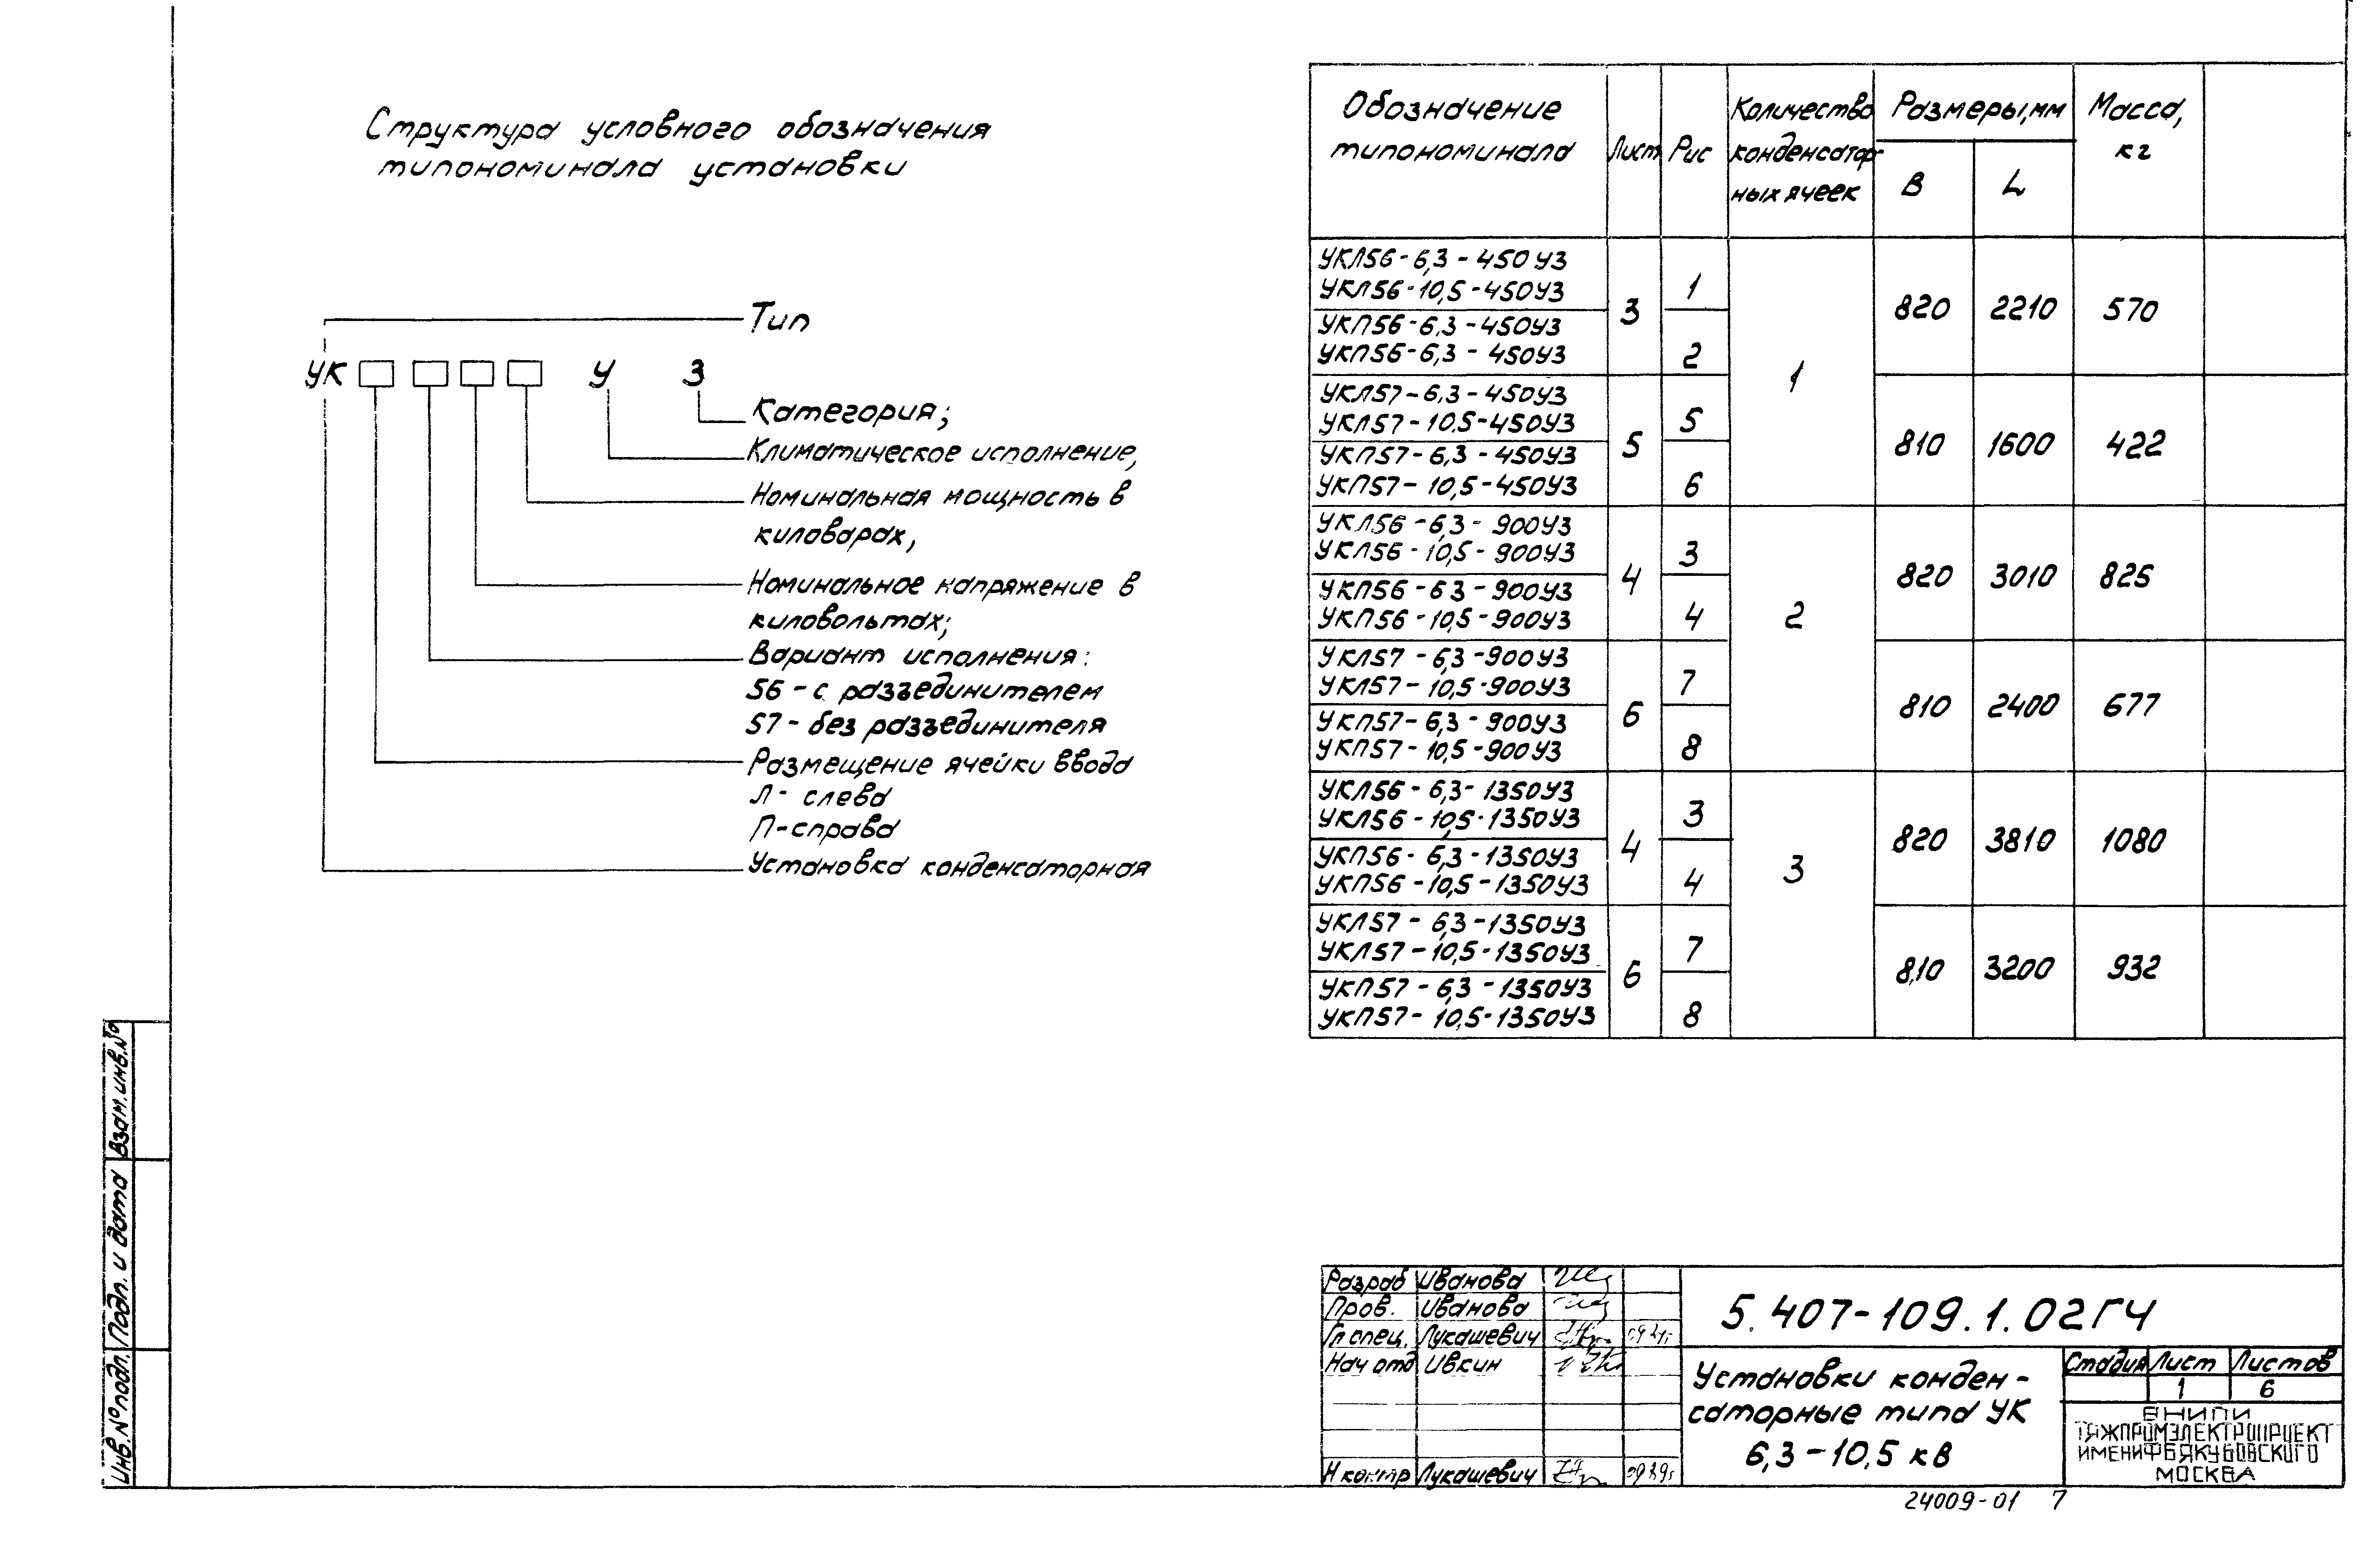 Структура условного обозначения
типономинала установки
Тип
УК У 3
Категория;
Климатическое исполнение,
Номинальная мощность в
киловарах,
Номинальное напряжение в
киловольтах;
Вариант исполнения:
56 - с разъединителем
57 - без разъединителя
Размещение ячейки ввода
Л - слева
П - справа
Установка конденсаторная
Обозначение типономинала Лист Рис Количество конденсатор- ных ячеек Размеры, мм B L Масса, кг
УКЛ56 - 6,3 - 450 У3
УКЛ56 - 10,5 - 450У3
3 1 1 820 2210 570
УКП56 - 6,3 - 450У3
УКП56 - 6,3 - 450У3
2
УКЛ57 - 6,3 - 450У3
УКЛ57 - 10.5 - 450У3
5 5 810 1600 422
УКП57 - 6,3 - 450У3
УКП57 - 10,5 - 450У3
6
УКЛ56 - 6,3 - 900У3
УКЛ56 - 10,5 - 900У3
4 3 2 820 3010 825
УКП56 - 6 3 - 900У3
УКП56 - 10,5 - 900У3
4
УКЛ57 - 6,3 - 900У3
УКЛ57 - 10,5 - 900У3
6 7 810 2400 677
УКП57 - 6,3 - 900У3
УКП57 - 10,5 - 900У3
8
УКЛ56 - 6,3 - 1350У3
УКЛ56 - 10,5 - 1350У3
4 3 3 820 3810 1080
УКП56 - 6,3 - 1350У3
УКП56 - 10,5 - 1350У3
4
УКЛ57 - 6,3 - 1350У3
УКЛ57 - 10,5 - 1350У3
6 7 810 3200 932
УКП57 - 6,3 - 1350У3
УКП57 - 10,5 - 1350У3
8
Взам. инв. №
Подп. и дата
Инв. № подл.
Разраб Иванова
Пров. Иванова
Гл спец. Лукашевич
Нач отд Ивкин
Н контр Лукашевич
5.407-109.1.02ГЧ
Установки конден-
саторные типа УК
6,3 - 10,5 кВ
Стадия Лист Листов
1 6
ВНИПИ
ТЯЖПРОМЭЛЕКТРОПРОЕКТ
ИМЕНИ Ф Б ЯКУБОВСКОГО
МОСКВА
24009-01 7